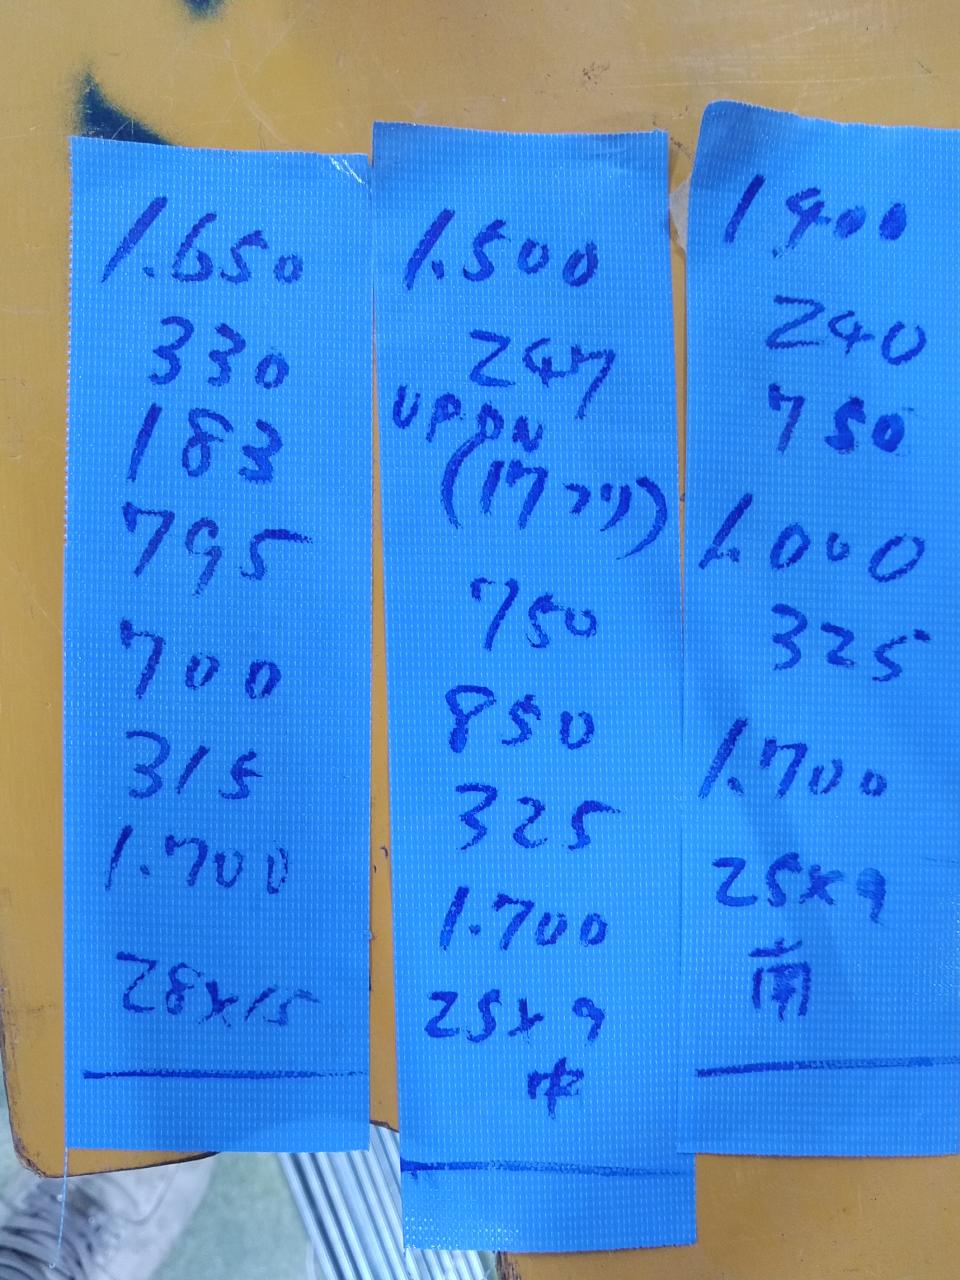 1.650
330
183
795
700
315
1.700
28×15
1.500
247
UP DN
(17フリ)
750
850
325
1.700
25×9
中
1400
240
750
1.000
325
1.700
25×9
南